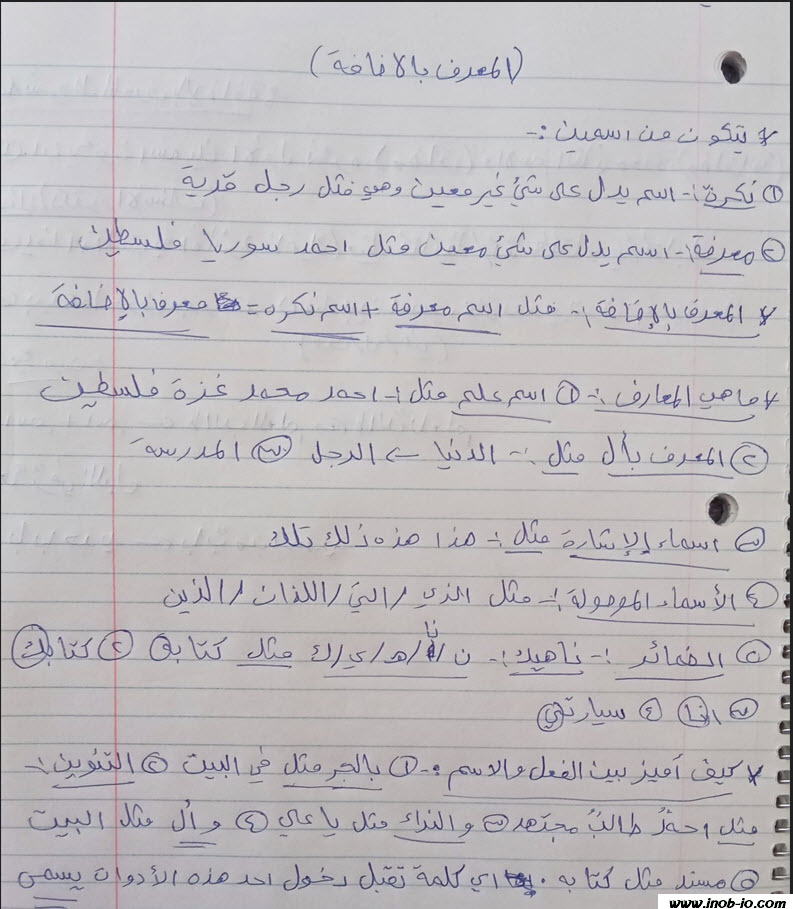 (المعرف بالاضافة)
* يتكون من اسمين :-
① نكرة :- اسم يدل على شئ غير معين وهو مثل رجل قرية
② معرفة :- اسم يدل على شئ معين مثل احمد سوريا فلسطين
* المعرف بالإضافة :- مثل اسم معرفة + اسم نكره = معرف بالإضافة
* ماهي المعارف :- ① اسم علم مثل :- احمد محمد غزة فلسطين
② المعرف بأل مثل :- الدنيا ← الرجل ③ المدرسة
③ اسماء الإشارة مثل :- هذا هذه ذلك تلك
④ الأسماء الموصولة :- مثل الذي / التي / اللذان / الذين
⑤ الضمائر :- ناهيك :- ن / نا / ه / ي / ك مثل كتابه ② كتابك
③ ④ سيارتي
* كيف أميز بين الفعل والاسم :- ① بالجر مثل في البيت ② التنوين :-
مثل طالبٌ مجتهد ③ والنداء مثل يا علي ④ وأل مثل البيت
⑤ مسند مثل كتابه . اي كلمة تقبل دخول احد هذه الأدوات يسمى
www.inob-io.com